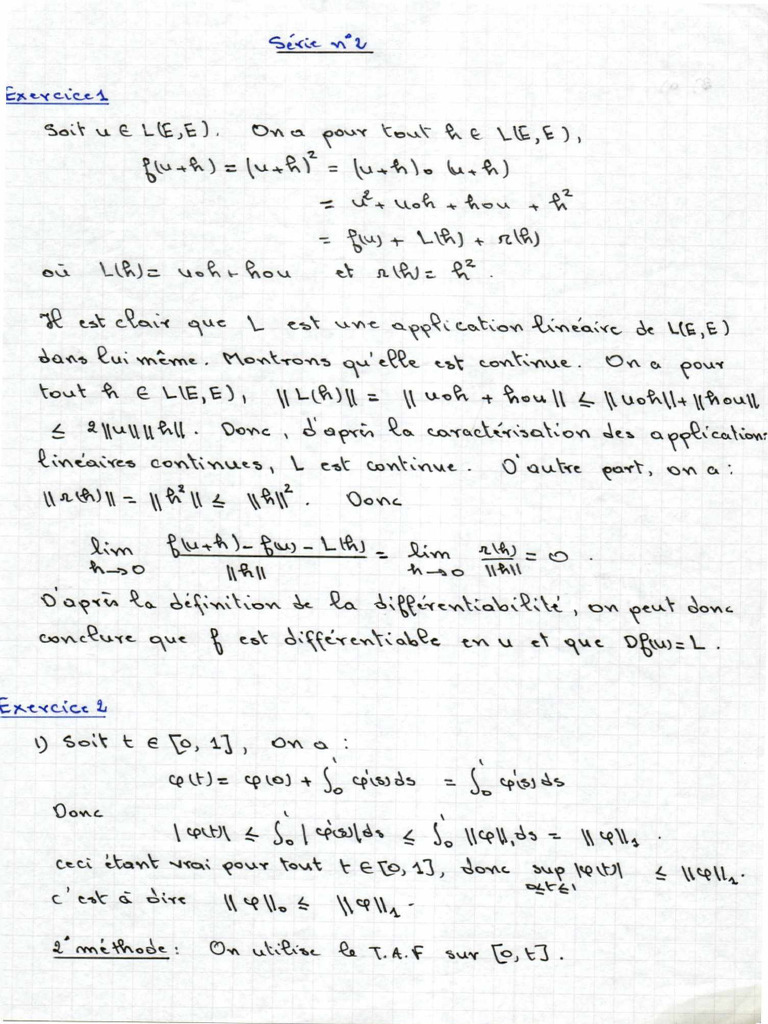 Série n°2
Exercice 1
Soit u ∈ L(E,E). On a pour tout h ∈ L(E,E),
f(u+h) = (u+h)² = (u+h) o (u+h)
= u² + uoh + hou + h²
= f(u) + L(h) + r(h)
où L(h) = uoh + hou et r(h) = h².
Il est clair que L est une application linéaire de L(E,E)
dans lui même. Montrons qu'elle est continue. On a pour
tout h ∈ L(E,E), ||L(h)|| = ||uoh + hou|| ≤ ||uoh|| + ||hou||
≤ 2||u|| ||h||. Donc, d'après la caractérisation des applications
linéaires continues, L est continue. D'autre part, on a :
||r(h)|| = ||h²|| ≤ ||h||². Donc
lim_{h→0} (f(u+h) - f(u) - L(h))/||h|| = lim_{h→0} r(h)/||h|| = 0.
D'après la définition de la différentiabilité, on peut donc
conclure que f est différentiable en u et que Df(u) = L.
Exercice 2
1) Soit t ∈ [0, 1], on a :
φ(t) = φ(0) + ∫₀¹ φ'(s) ds = ∫₀¹ φ'(s) ds
Donc
|φ(t)| ≤ ∫₀¹ |φ'(s)| ds ≤ ∫₀¹ ||φ||₁ ds = ||φ||₁.
ceci étant vrai pour tout t ∈ [0, 1], donc sup_{0≤t≤1} |φ(t)| ≤ ||φ||₁.
c'est à dire ||φ||₀ ≤ ||φ||₁.
2° méthode : On utilise le T.A.F sur [0, t].